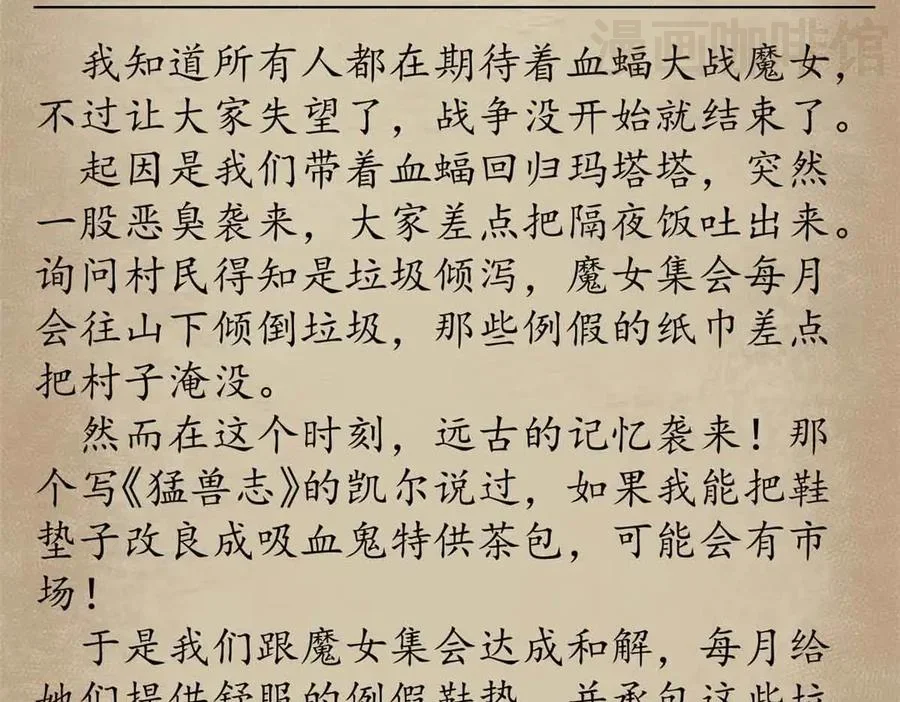 漫画咖啡馆
我知道所有人都在期待着血蝠大战魔女，
不过让大家失望了，战争没开始就结束了。
起因是我们带着血蝠回归玛塔塔，突然
一股恶臭袭来，大家差点把隔夜饭吐出来。
询问村民得知是垃圾倾泻，魔女集会每月
会往山下倾倒垃圾，那些例假的纸巾差点
把村子淹没。
然而在这个时刻，远古的记忆袭来！那
个写《猛兽志》的凯尔说过，如果我能把鞋
垫子改良成吸血鬼特供茶包，可能会有市
场！
于是我们跟魔女集会达成和解，每月给
她们提供舒服的例假鞋垫，并承包这些垃